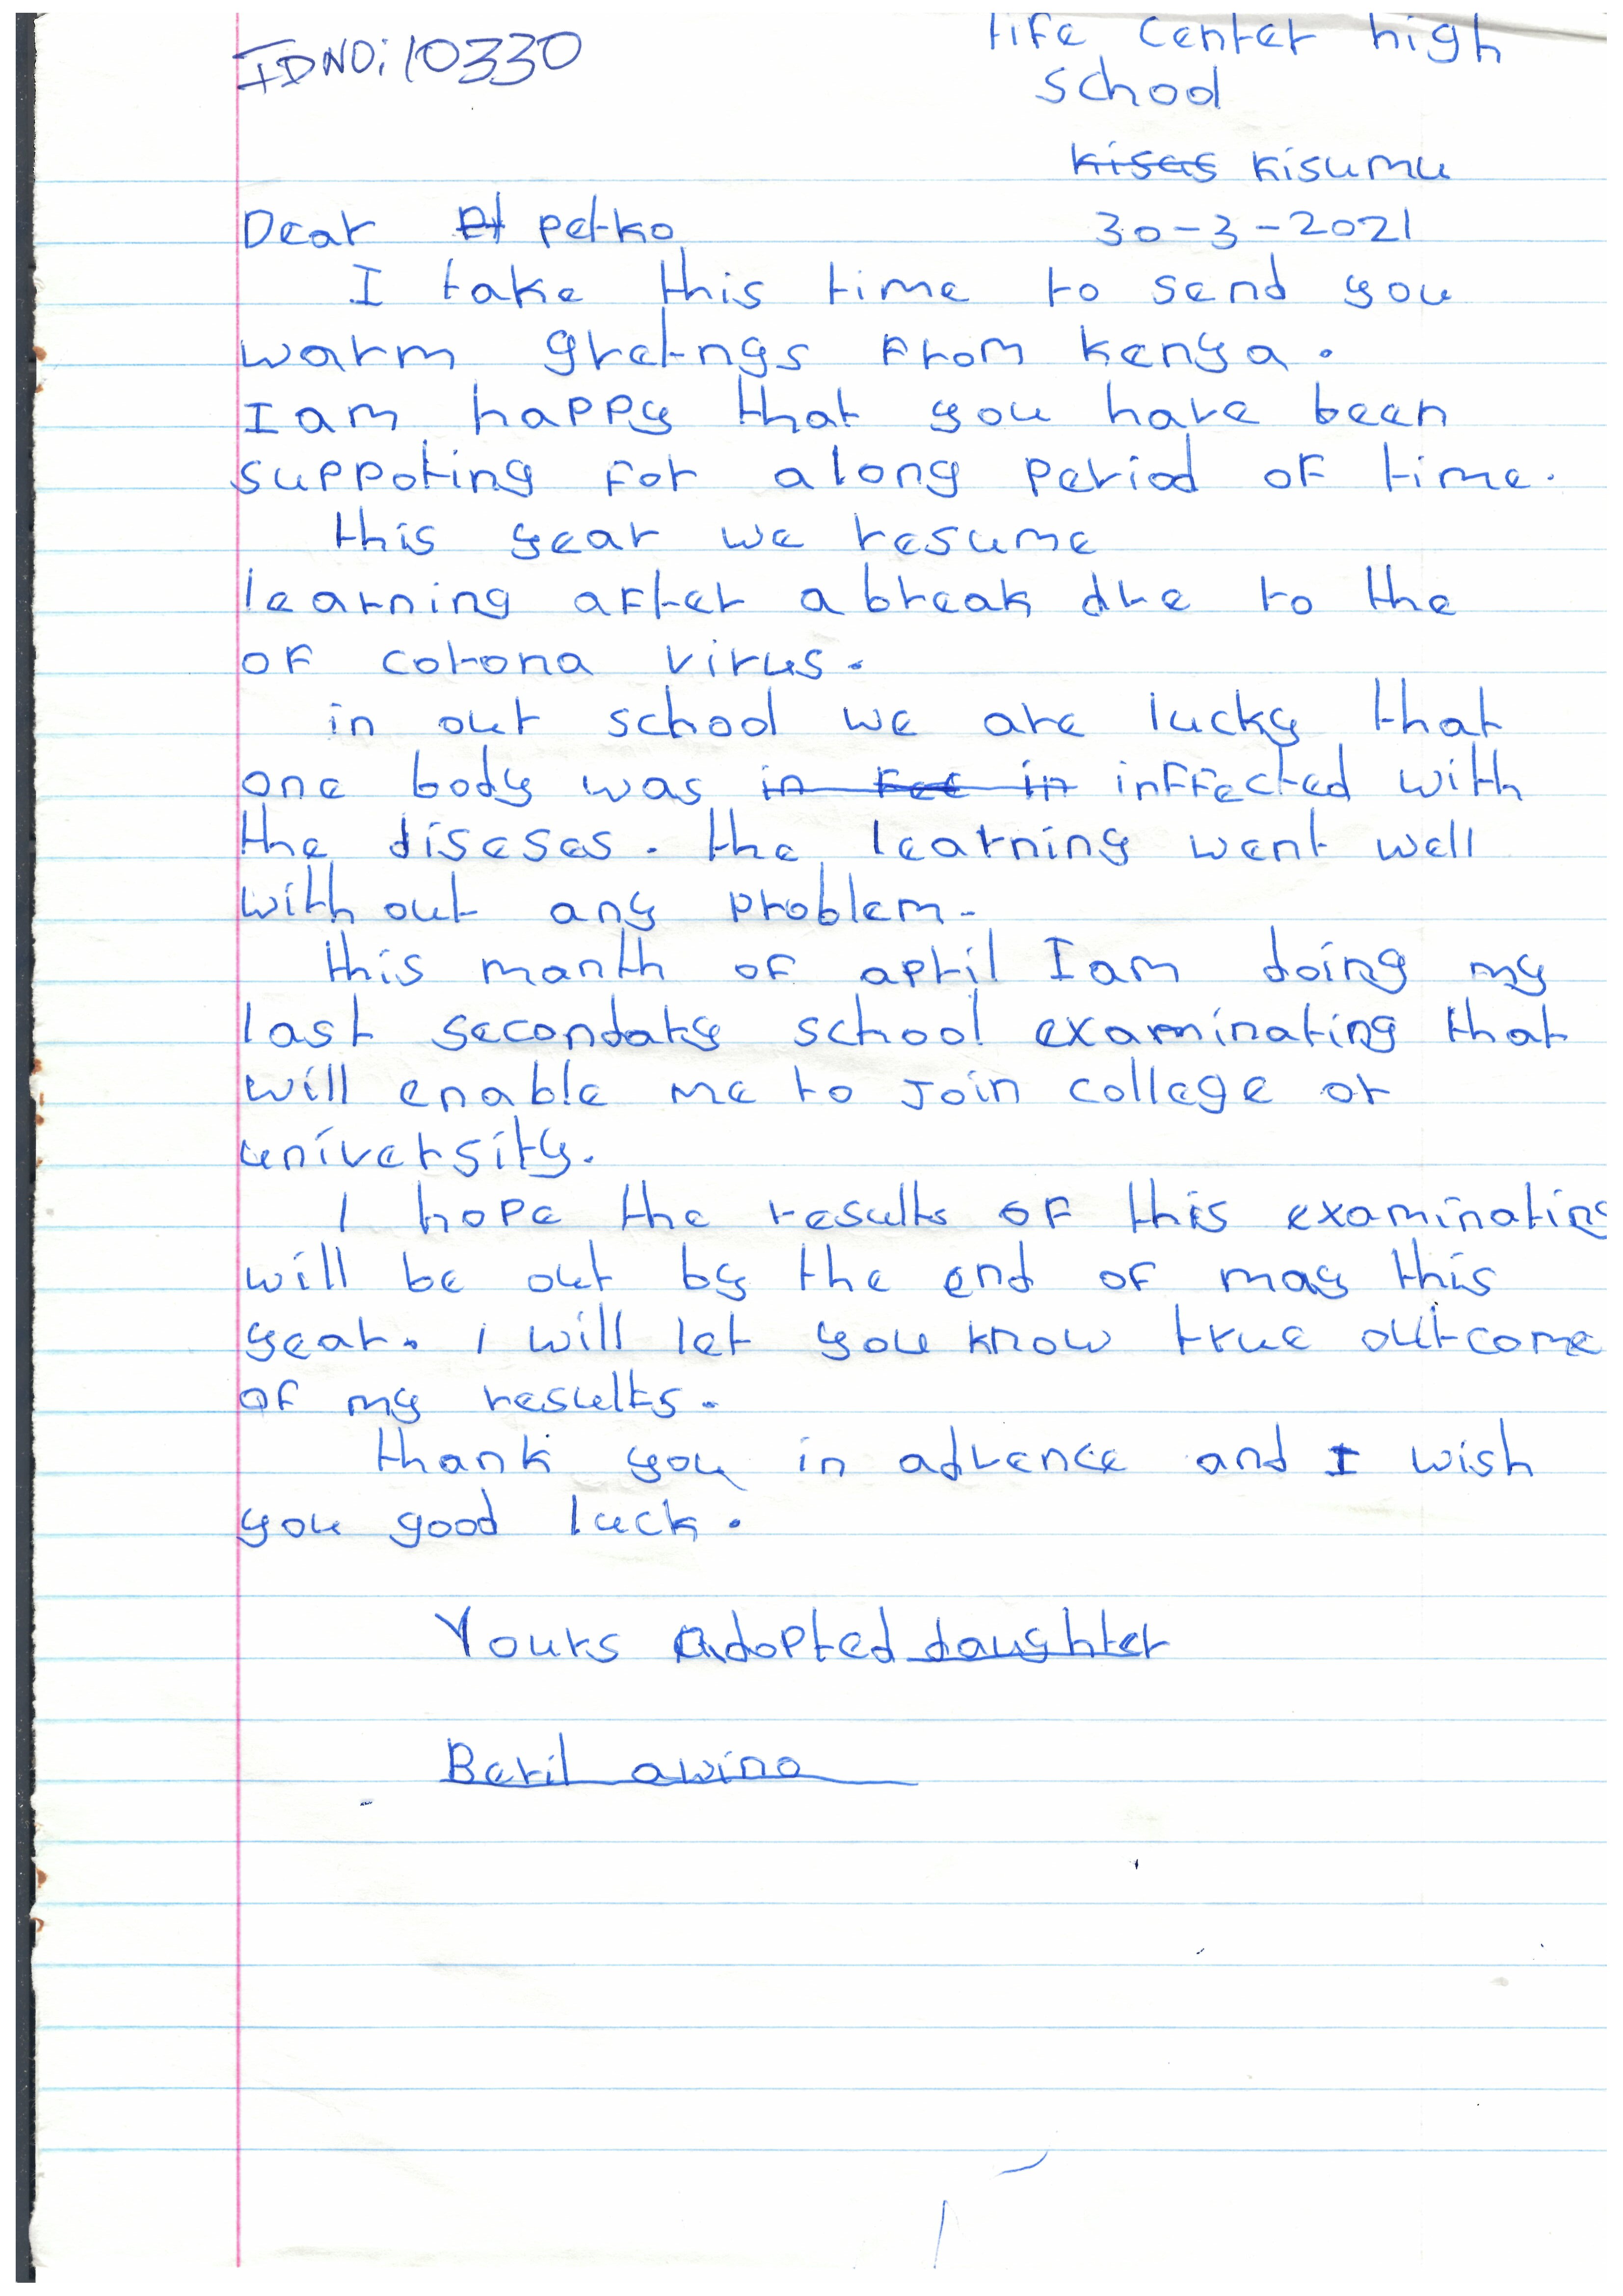 IDNO: 10330
life center high
school
kisas kisumu
Dear Pt petko
30-3-2021
I take this time to send you
warm gretngs From kenya.
I am happy that you have been
suppoting for along period of time.
this year we resume
learning after a break due to the
of corona virus.
in our school we are lucky that
one body was in fec in inffected with
the diseses. the learning went well
with out any problem-
this manth of april I am doing my
last secondary school examinating that
will enable me to join college or
university.
I hope the results of this examinating
will be out by the end of may this
year. I will let you know true outcome
of my results.
thank you in advence and I wish
you good luck.
Yours Adopted daughter
Beril awino